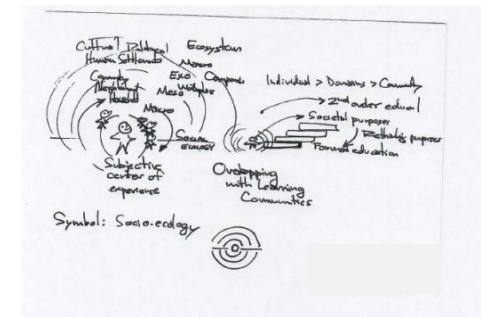 Cultural Political Ecosystem
Human Settlements Macro
Community Exo Companies
Neighborhood Workplace
Household Meso
Micro
SOCIAL
ECOLOGY
Subjective
center of
experience
Individual > Domains > Community
→ 2nd order
→ Societal purposes
purposes
Formal education
Overlapping
with Learning
Communities
Symbol: Socio-ecology